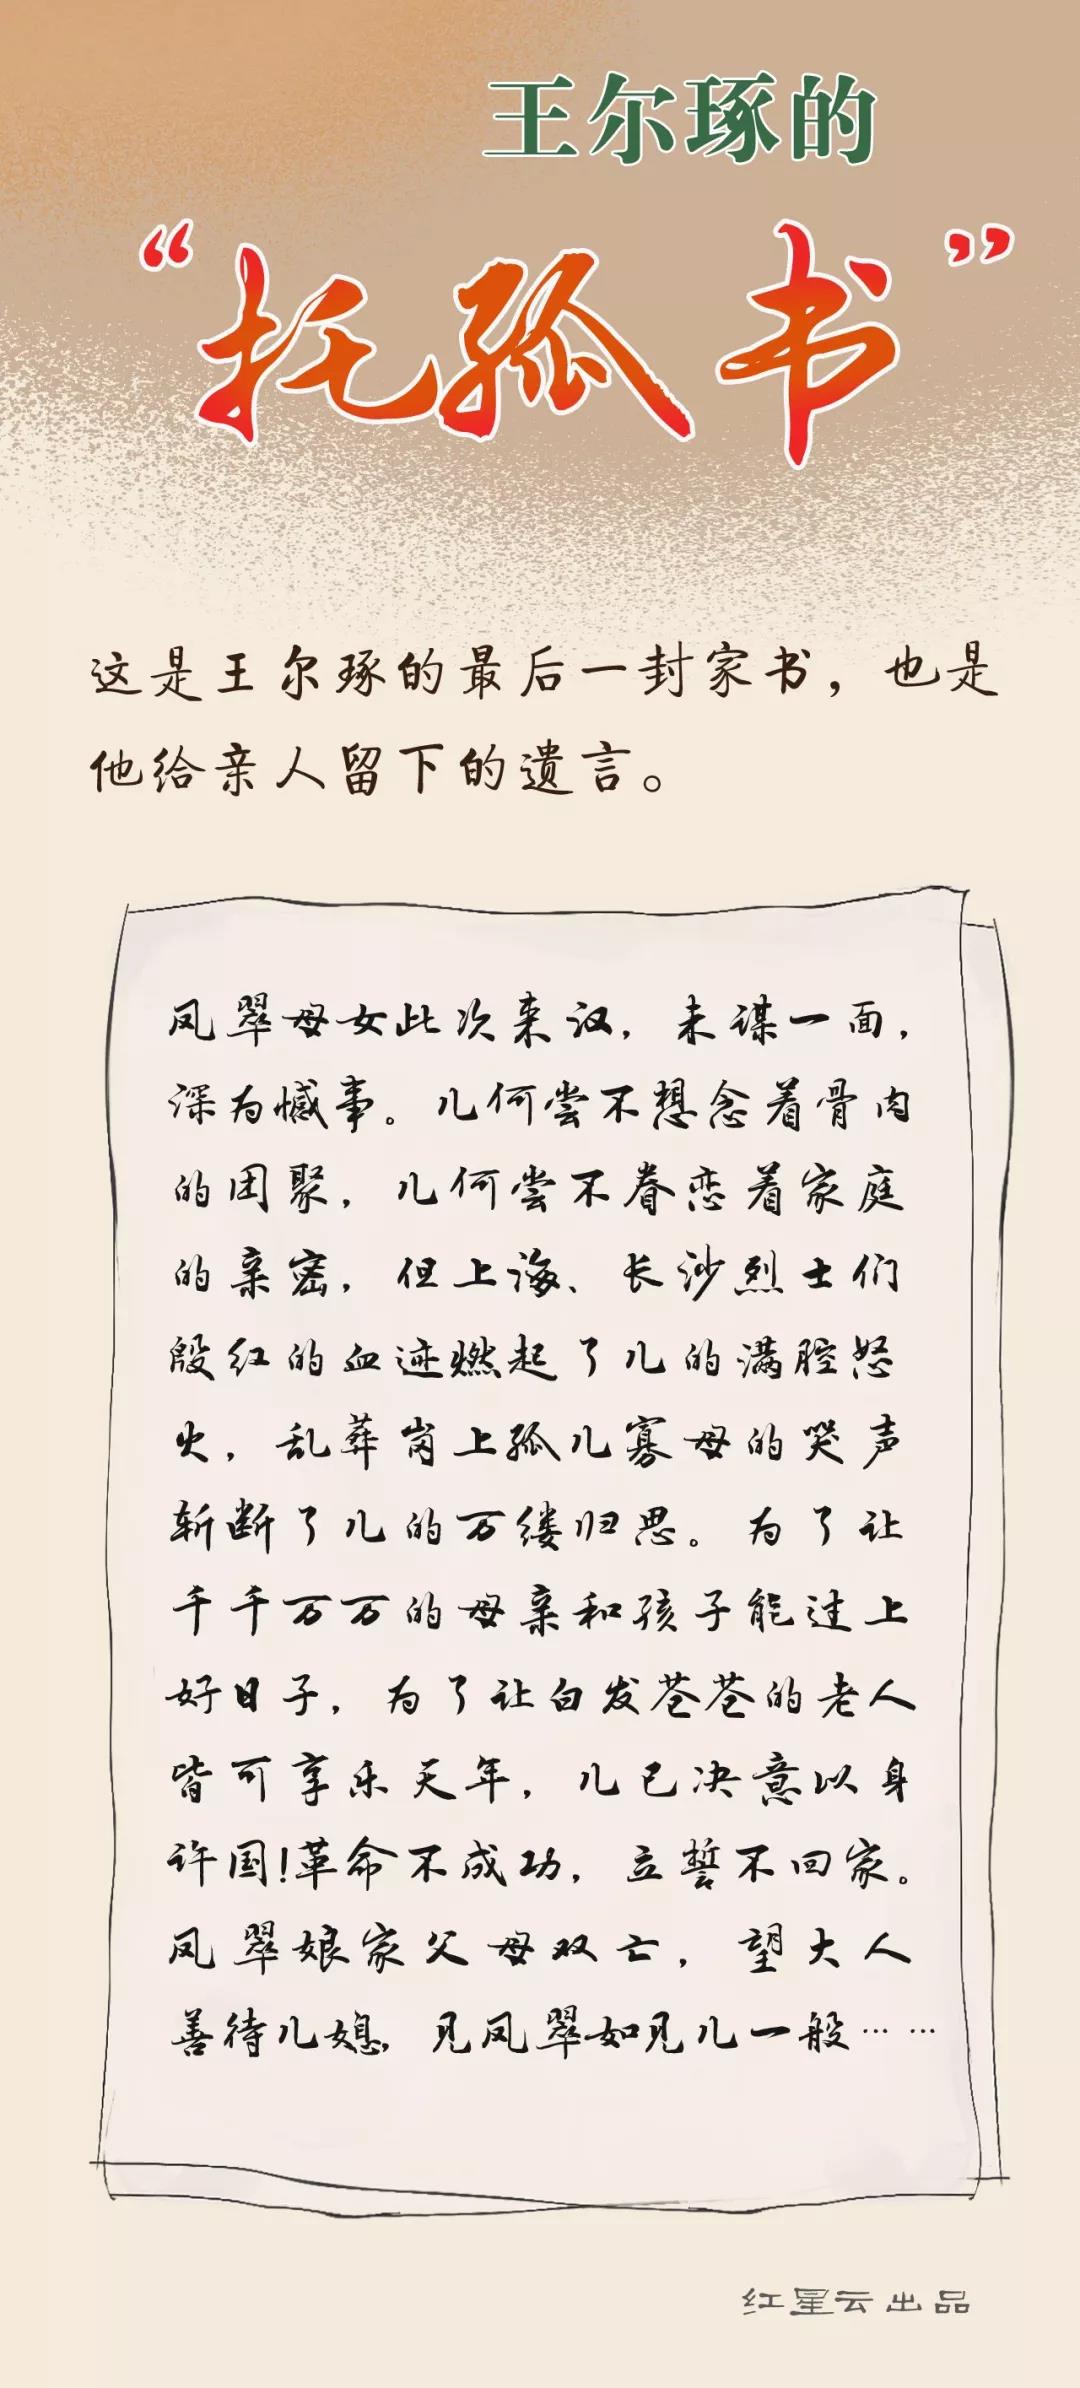 王尔琢的
“托孤书”
这是王尔琢的最后一封家书，也是
他给亲人留下的遗言。
凤翠母女此次来汉，未谋一面，
深为憾事。儿何尝不想念着骨肉
的团聚，儿何尝不眷恋着家庭
的亲密，但上海、长沙烈士们
殷红的血迹燃起了儿的满腔怒
火，乱葬岗上孤儿寡母的哭声
斩断了儿的万缕归思。为了让
千千万万的母亲和孩子能过上
好日子，为了让白发苍苍的老人
皆可享乐天年，儿已决意以身
许国！革命不成功，立誓不回家。
凤翠娘家父母双亡，望大人
善待儿媳，见凤翠如见儿一般……
红星云出品